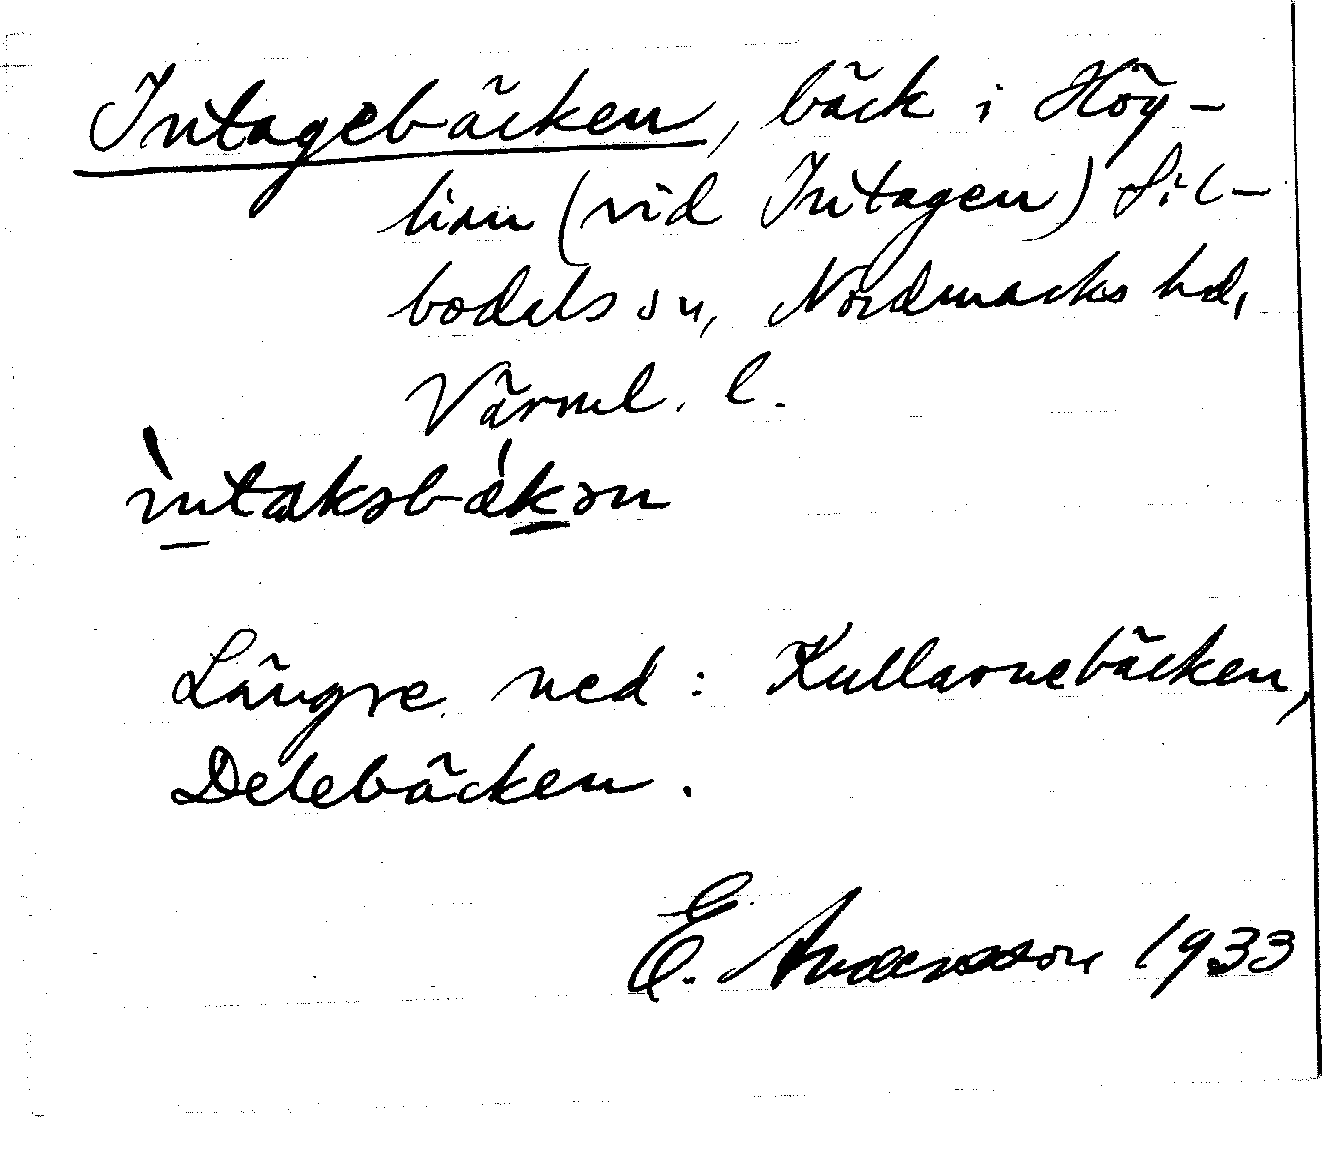 Intagebäcken, bäck i Hög-
lian (vid Intagen) Sil-
bodals sn, Nordmarks hd,
Värml. l.
ìntakəbǽkən
Längre ned: Kullarnebäcken,
Delebäcken.
E. Andersson 1933